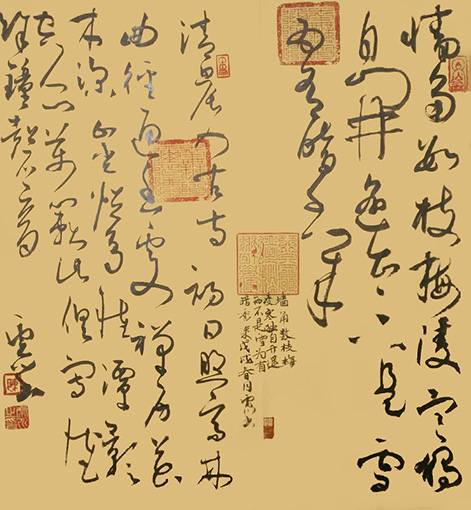 墙角数枝梅凌寒独
自开遥知不是雪
为有暗香来
墙角数枝梅
凌寒独自开遥
知不是雪为有
暗香来戊戌春月云山书
清晨入古寺初日照高林
曲径通幽处禅房花
木深山光悦鸟性潭影
空人心万籁此俱寂惟
余钟磬音